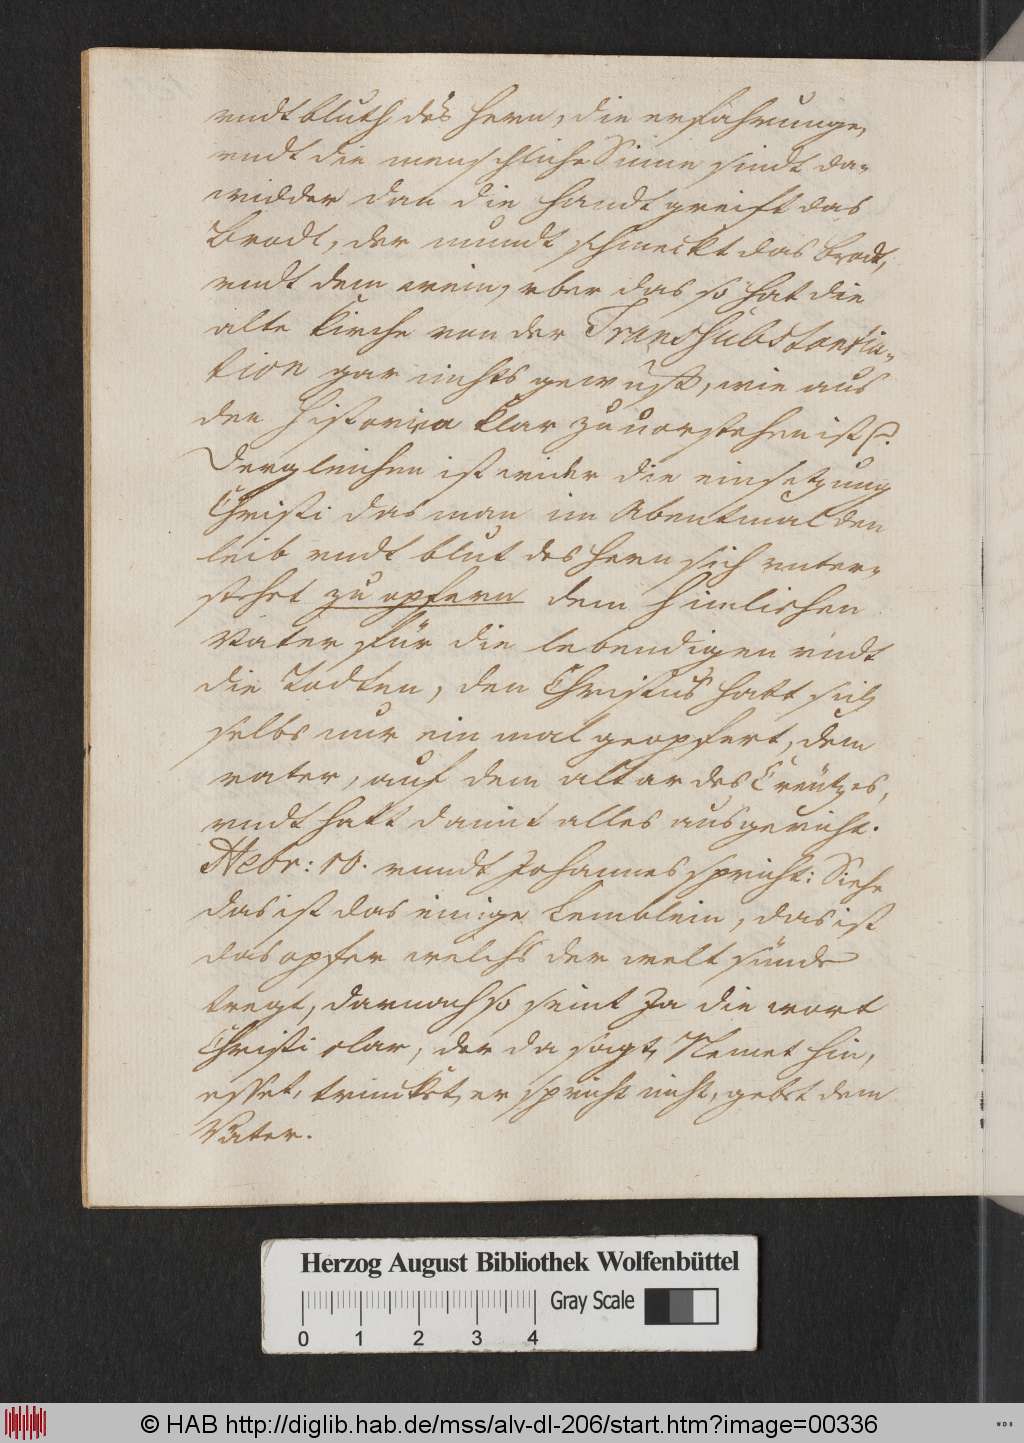 vndt bluth des Hern, die erfahrunge,
vndt die menschliche Sinne sindt da-
widder dan die Handt greift das
Brodt, der mundt schmeckt das brodt,
vndt dem wein, vber das so hat die
alte Kirche von der Transsubstantia-
tion gar nichts gewust, wie aus
den Historien klar zuuorstehen ist.
Dergleichen ist wider die einsetzung
Christi das man im Abentmal den
leib vndt blut des Hern sich vnter-
stehet zu opfern dem Himlischen
Vater für die lebendigen vndt
die Todten, den Christus hatt sich
selbs nur ein mal geopfert, dem
vater, auf dem altar des Creützes,
vndt hatt damit alles ausgericht.
Hebr: 10. vnndt Johannes spricht: Siehe
das ist das einige Lemblein, das ist
das opfer welchs der welt sünde
tregt, darnach so seint Ja die wort
Christi clar, der da sagt, Nemet hin,
esset, trincket, er spricht nicht, gebet dem
Vater.
Herzog August Bibliothek Wolfenbüttel
Gray Scale
0 1 2 3 4
© HAB http://diglib.hab.de/mss/alv-dl-206/start.htm?image=00336